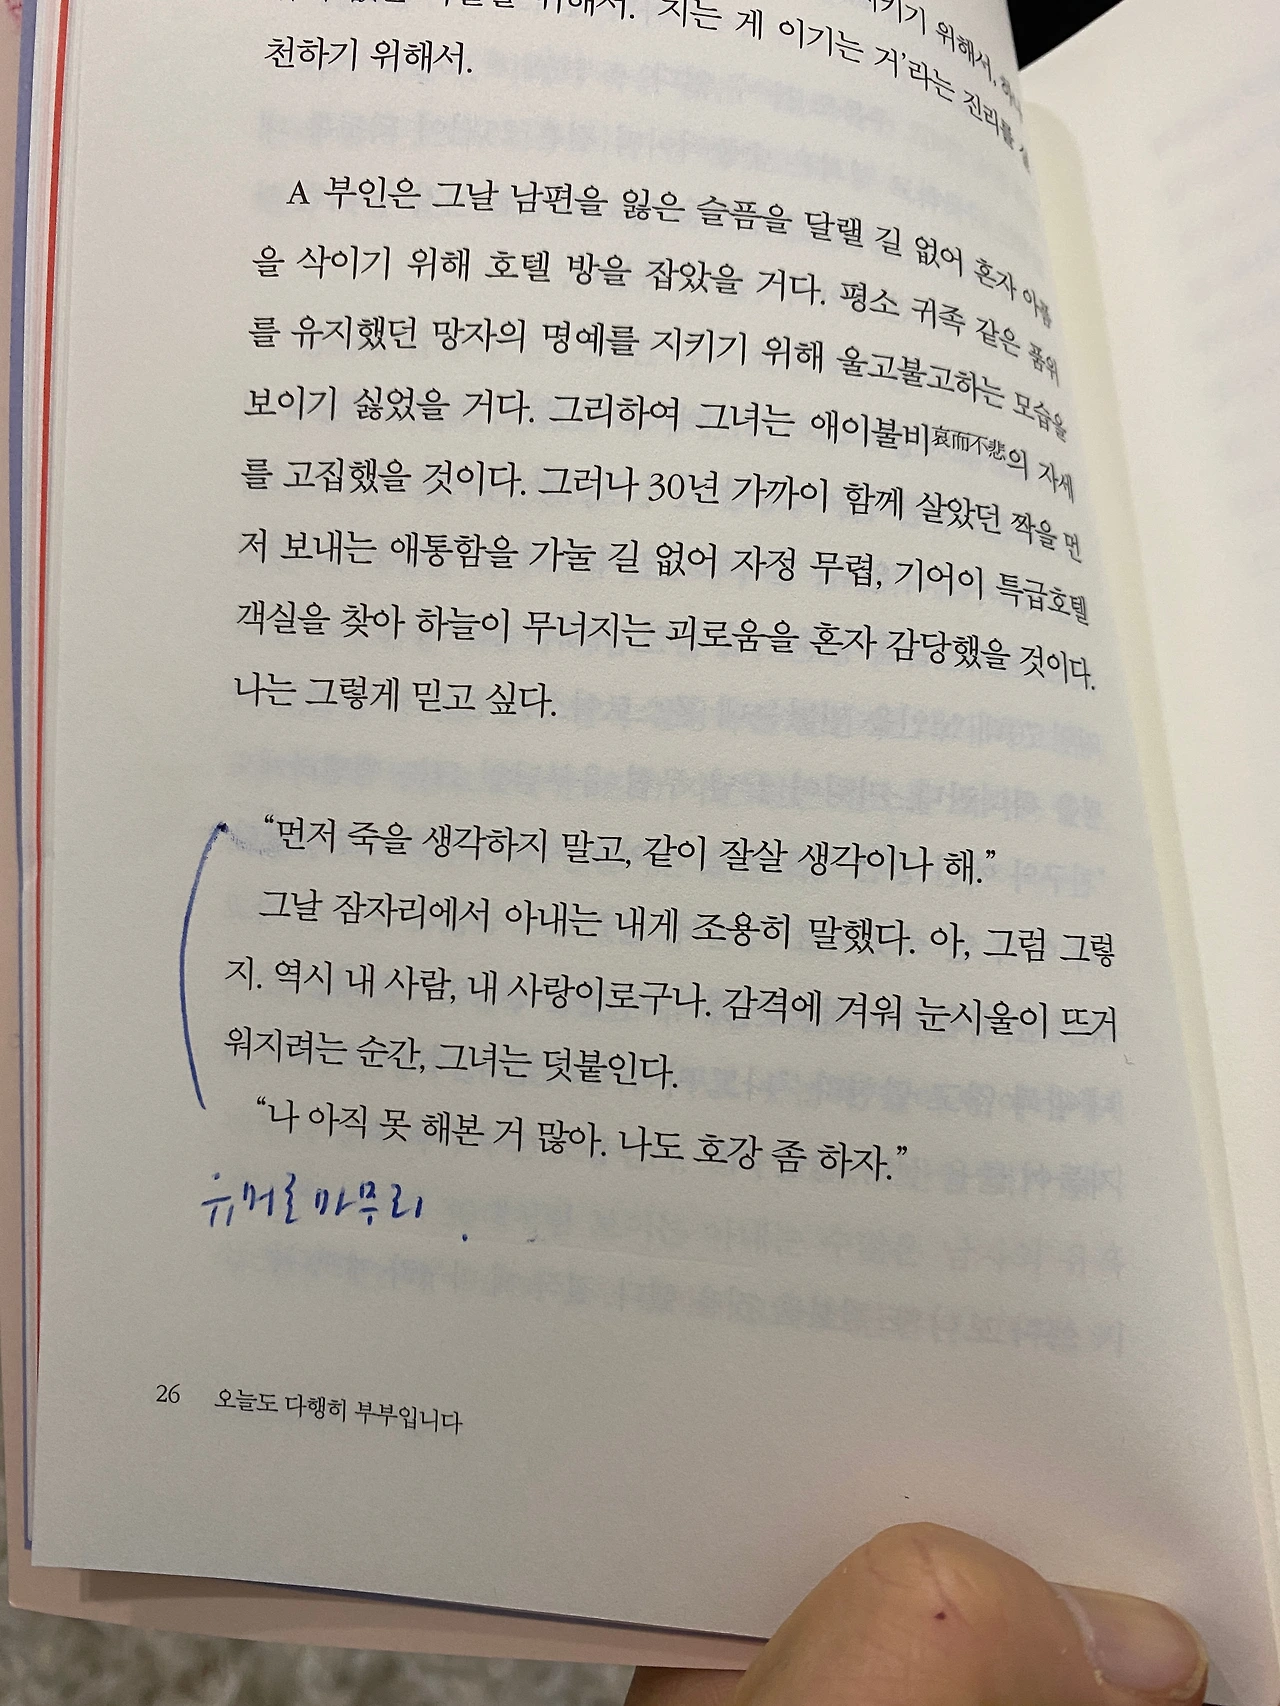 지키기 위해서, 하나
위해서. '지는 게 이기는 거'라는 진리를 실
천하기 위해서.
A 부인은 그날 남편을 잃은 슬픔을 달랠 길 없어 혼자 아픔
을 삭이기 위해 호텔 방을 잡았을 거다. 평소 귀족 같은 품위
를 유지했던 망자의 명예를 지키기 위해 울고불고하는 모습을
보이기 싫었을 거다. 그리하여 그녀는 애이불비哀而不悲의 자세
를 고집했을 것이다. 그러나 30년 가까이 함께 살았던 짝을 먼
저 보내는 애통함을 가눌 길 없어 자정 무렵, 기어이 특급호텔
객실을 찾아 하늘이 무너지는 괴로움을 혼자 감당했을 것이다.
나는 그렇게 믿고 싶다.
“먼저 죽을 생각하지 말고, 같이 잘살 생각이나 해.”
그날 잠자리에서 아내는 내게 조용히 말했다. 아, 그럼 그렇
지. 역시 내 사람, 내 사랑이로구나. 감격에 겨워 눈시울이 뜨거
워지려는 순간, 그녀는 덧붙인다.
“나 아직 못 해본 거 많아. 나도 호강 좀 하자.”
유머로 마무리.
26 오늘도 다행히 부부입니다